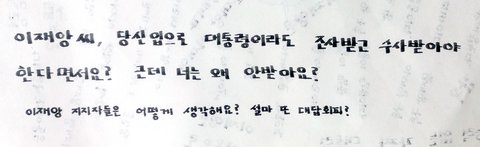 이재앙씨, 당신입으로 대통령이라도 조사받고 수사받아야
한다면서요? 근데 너는 왜 안받아요?
이재앙 지지자들은 어떻게 생각해요? 설마 또 대답회피?